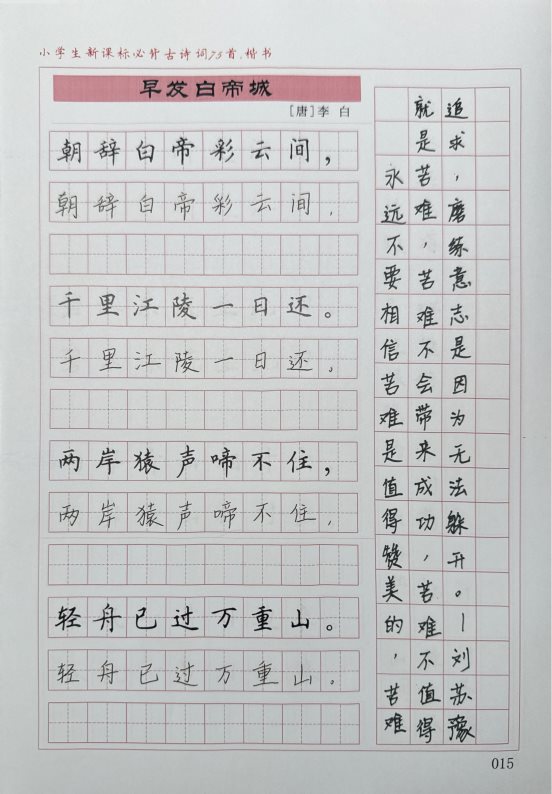 小学生新课标必背古诗词75首.楷书
早发白帝城
［唐］李 白
朝辞白帝彩云间，
朝辞白帝彩云间，
千里江陵一日还。
千里江陵一日还，
两岸猿声啼不住，
两岸猿声啼不住，
轻舟已过万重山。
轻舟已过万重山。
永远不要相信苦难是值得赞美的，苦难
就是苦难，苦难不会带来成功，苦难不值得
追求，磨练意志是因为无法躲开。—刘苏豫
015